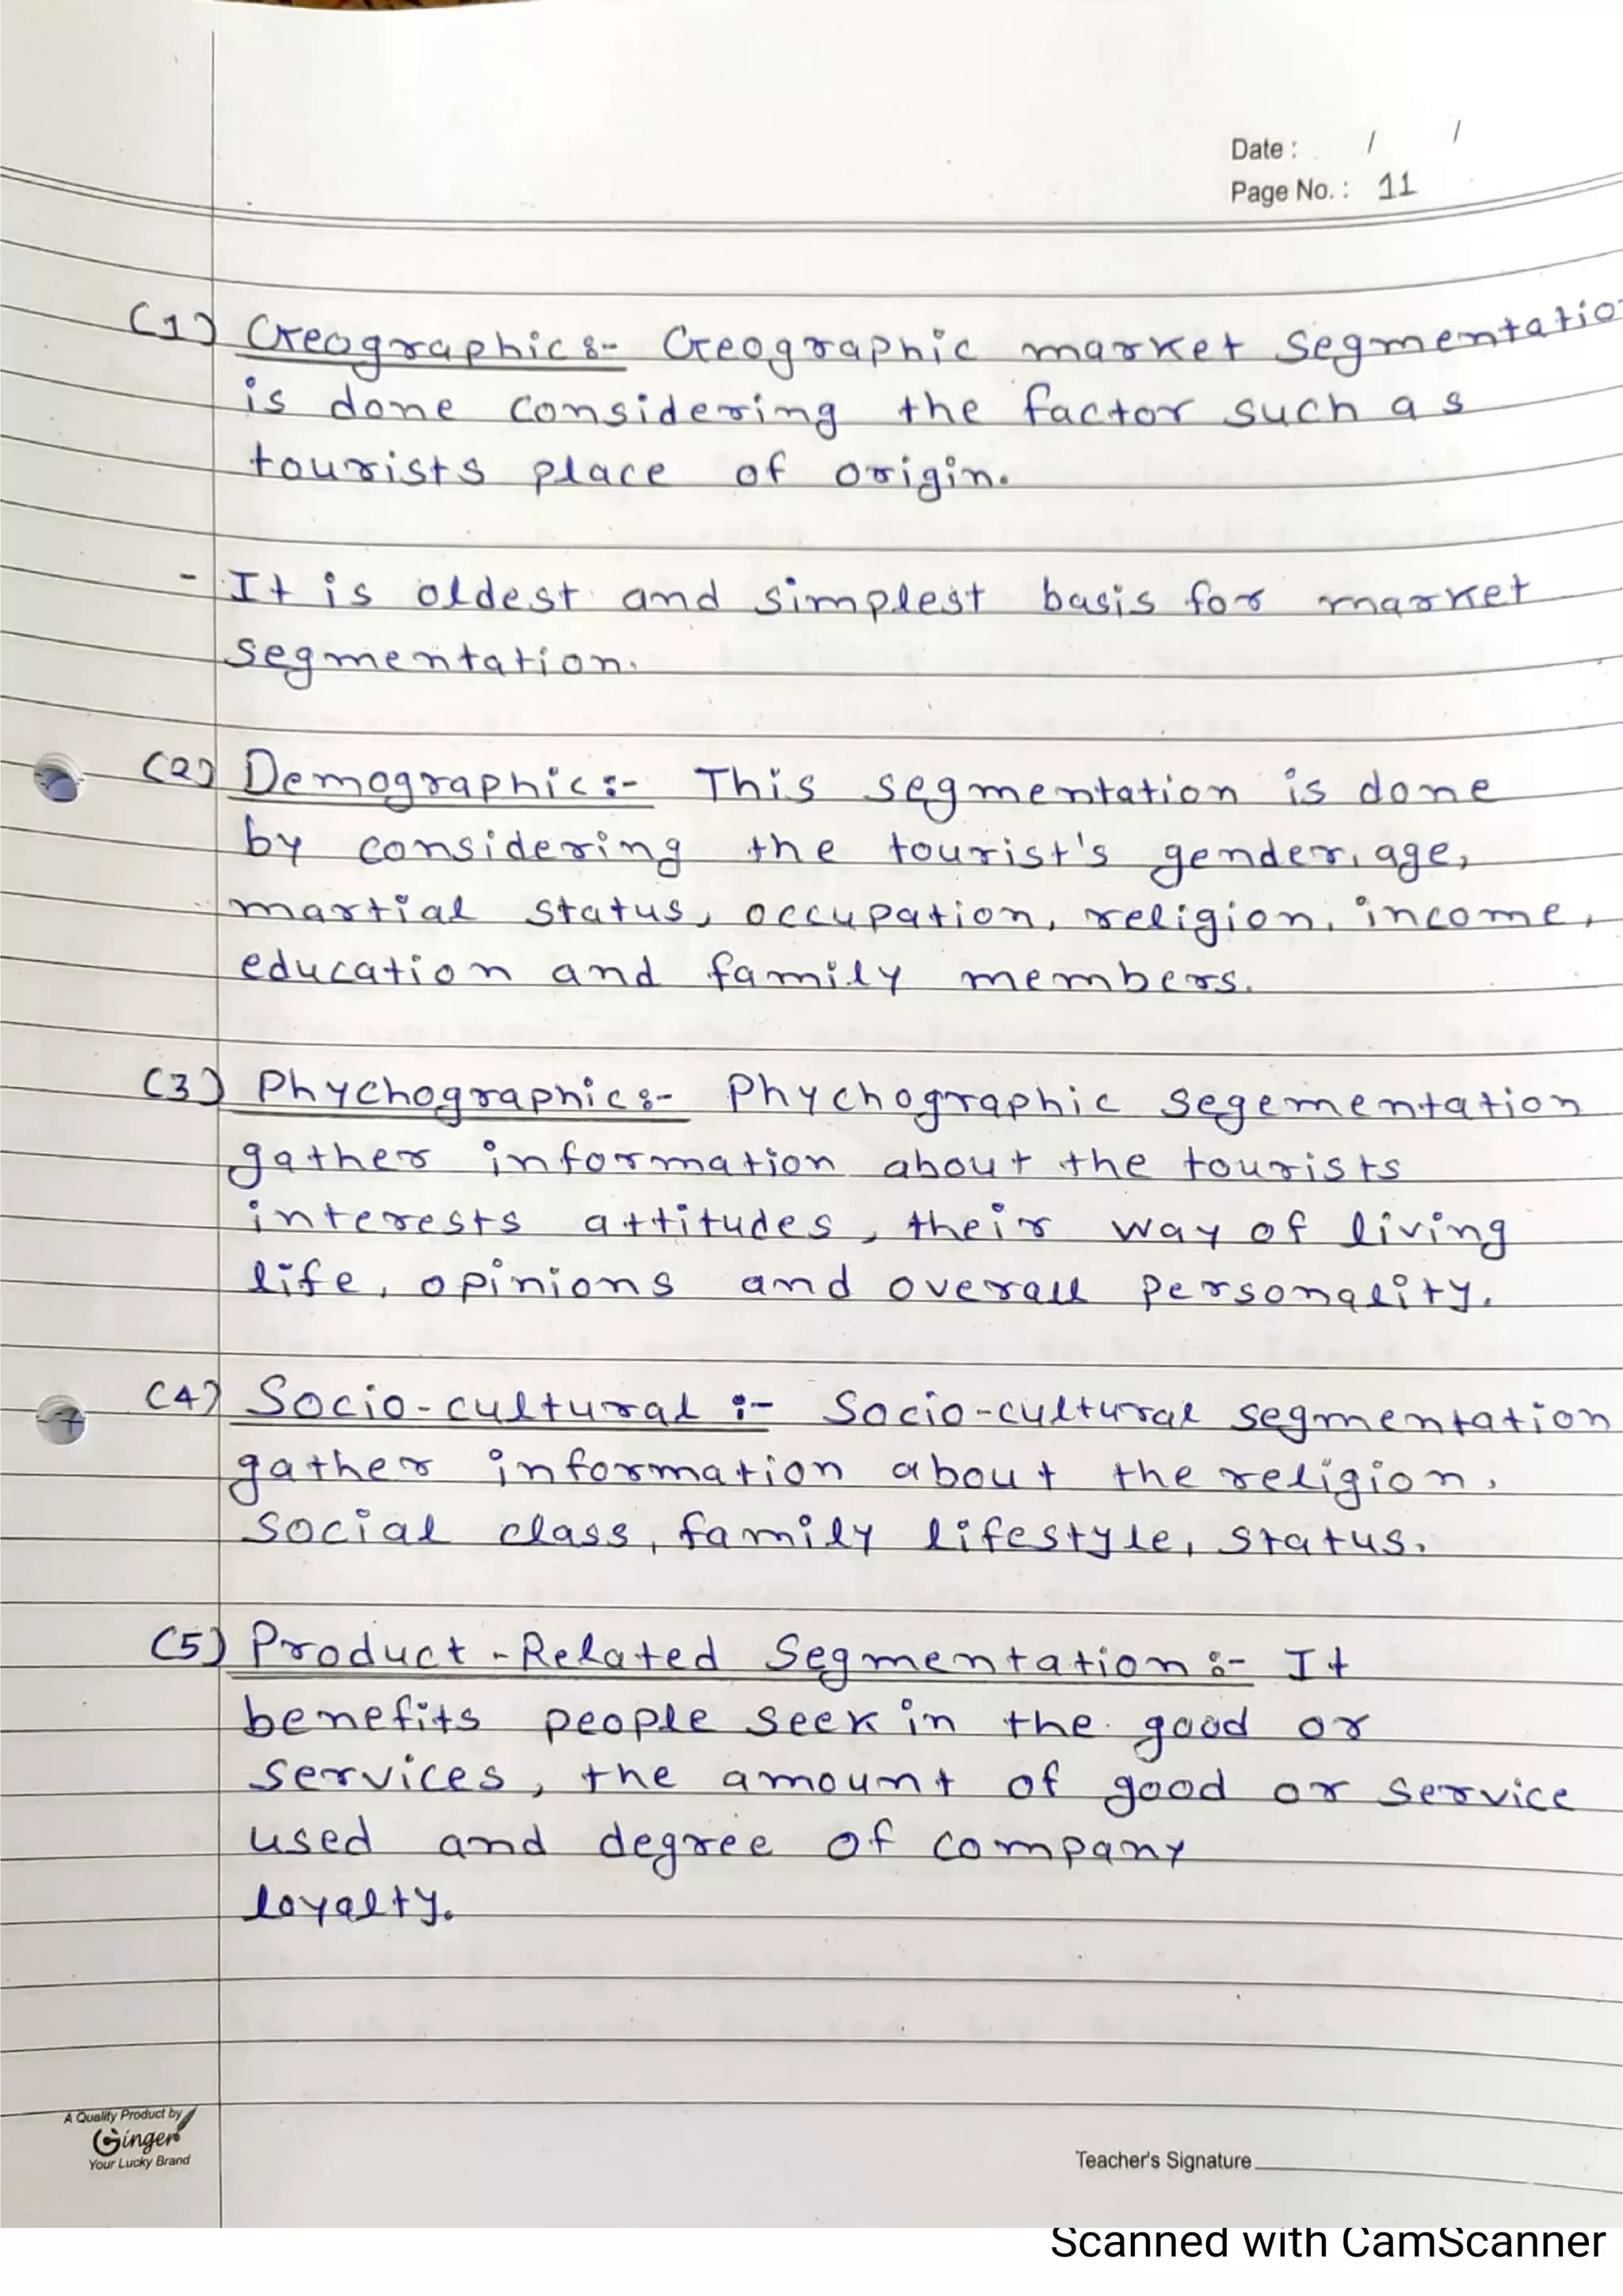 Date : / /
Page No. : 11
(1) Geographic :- Geographic market segmentatio
is done considering the factor such as
tourists place of origin.
- It is oldest and simplest basis for market
segmentation.
(2) Demographic :- This segmentation is done
by considering the tourist's gender, age,
martial status, occupation, religion, income,
education and family members.
(3) Phychographic :- Phychographic segementation
gather information about the tourists
interests attitudes, their way of living
life, opinions and overall personality.
(4) Socio-cultural :- Socio-cultural segmentation
gather information about the religion,
social class, family lifestyle, status.
(5) Product-Related Segmentation :- It
benefits people seek in the good or
services, the amount of good or service
used and degree of company
loyalty.
A Quality Product by
Ginger
Your Lucky Brand
Teacher's Signature
Scanned with CamScanner